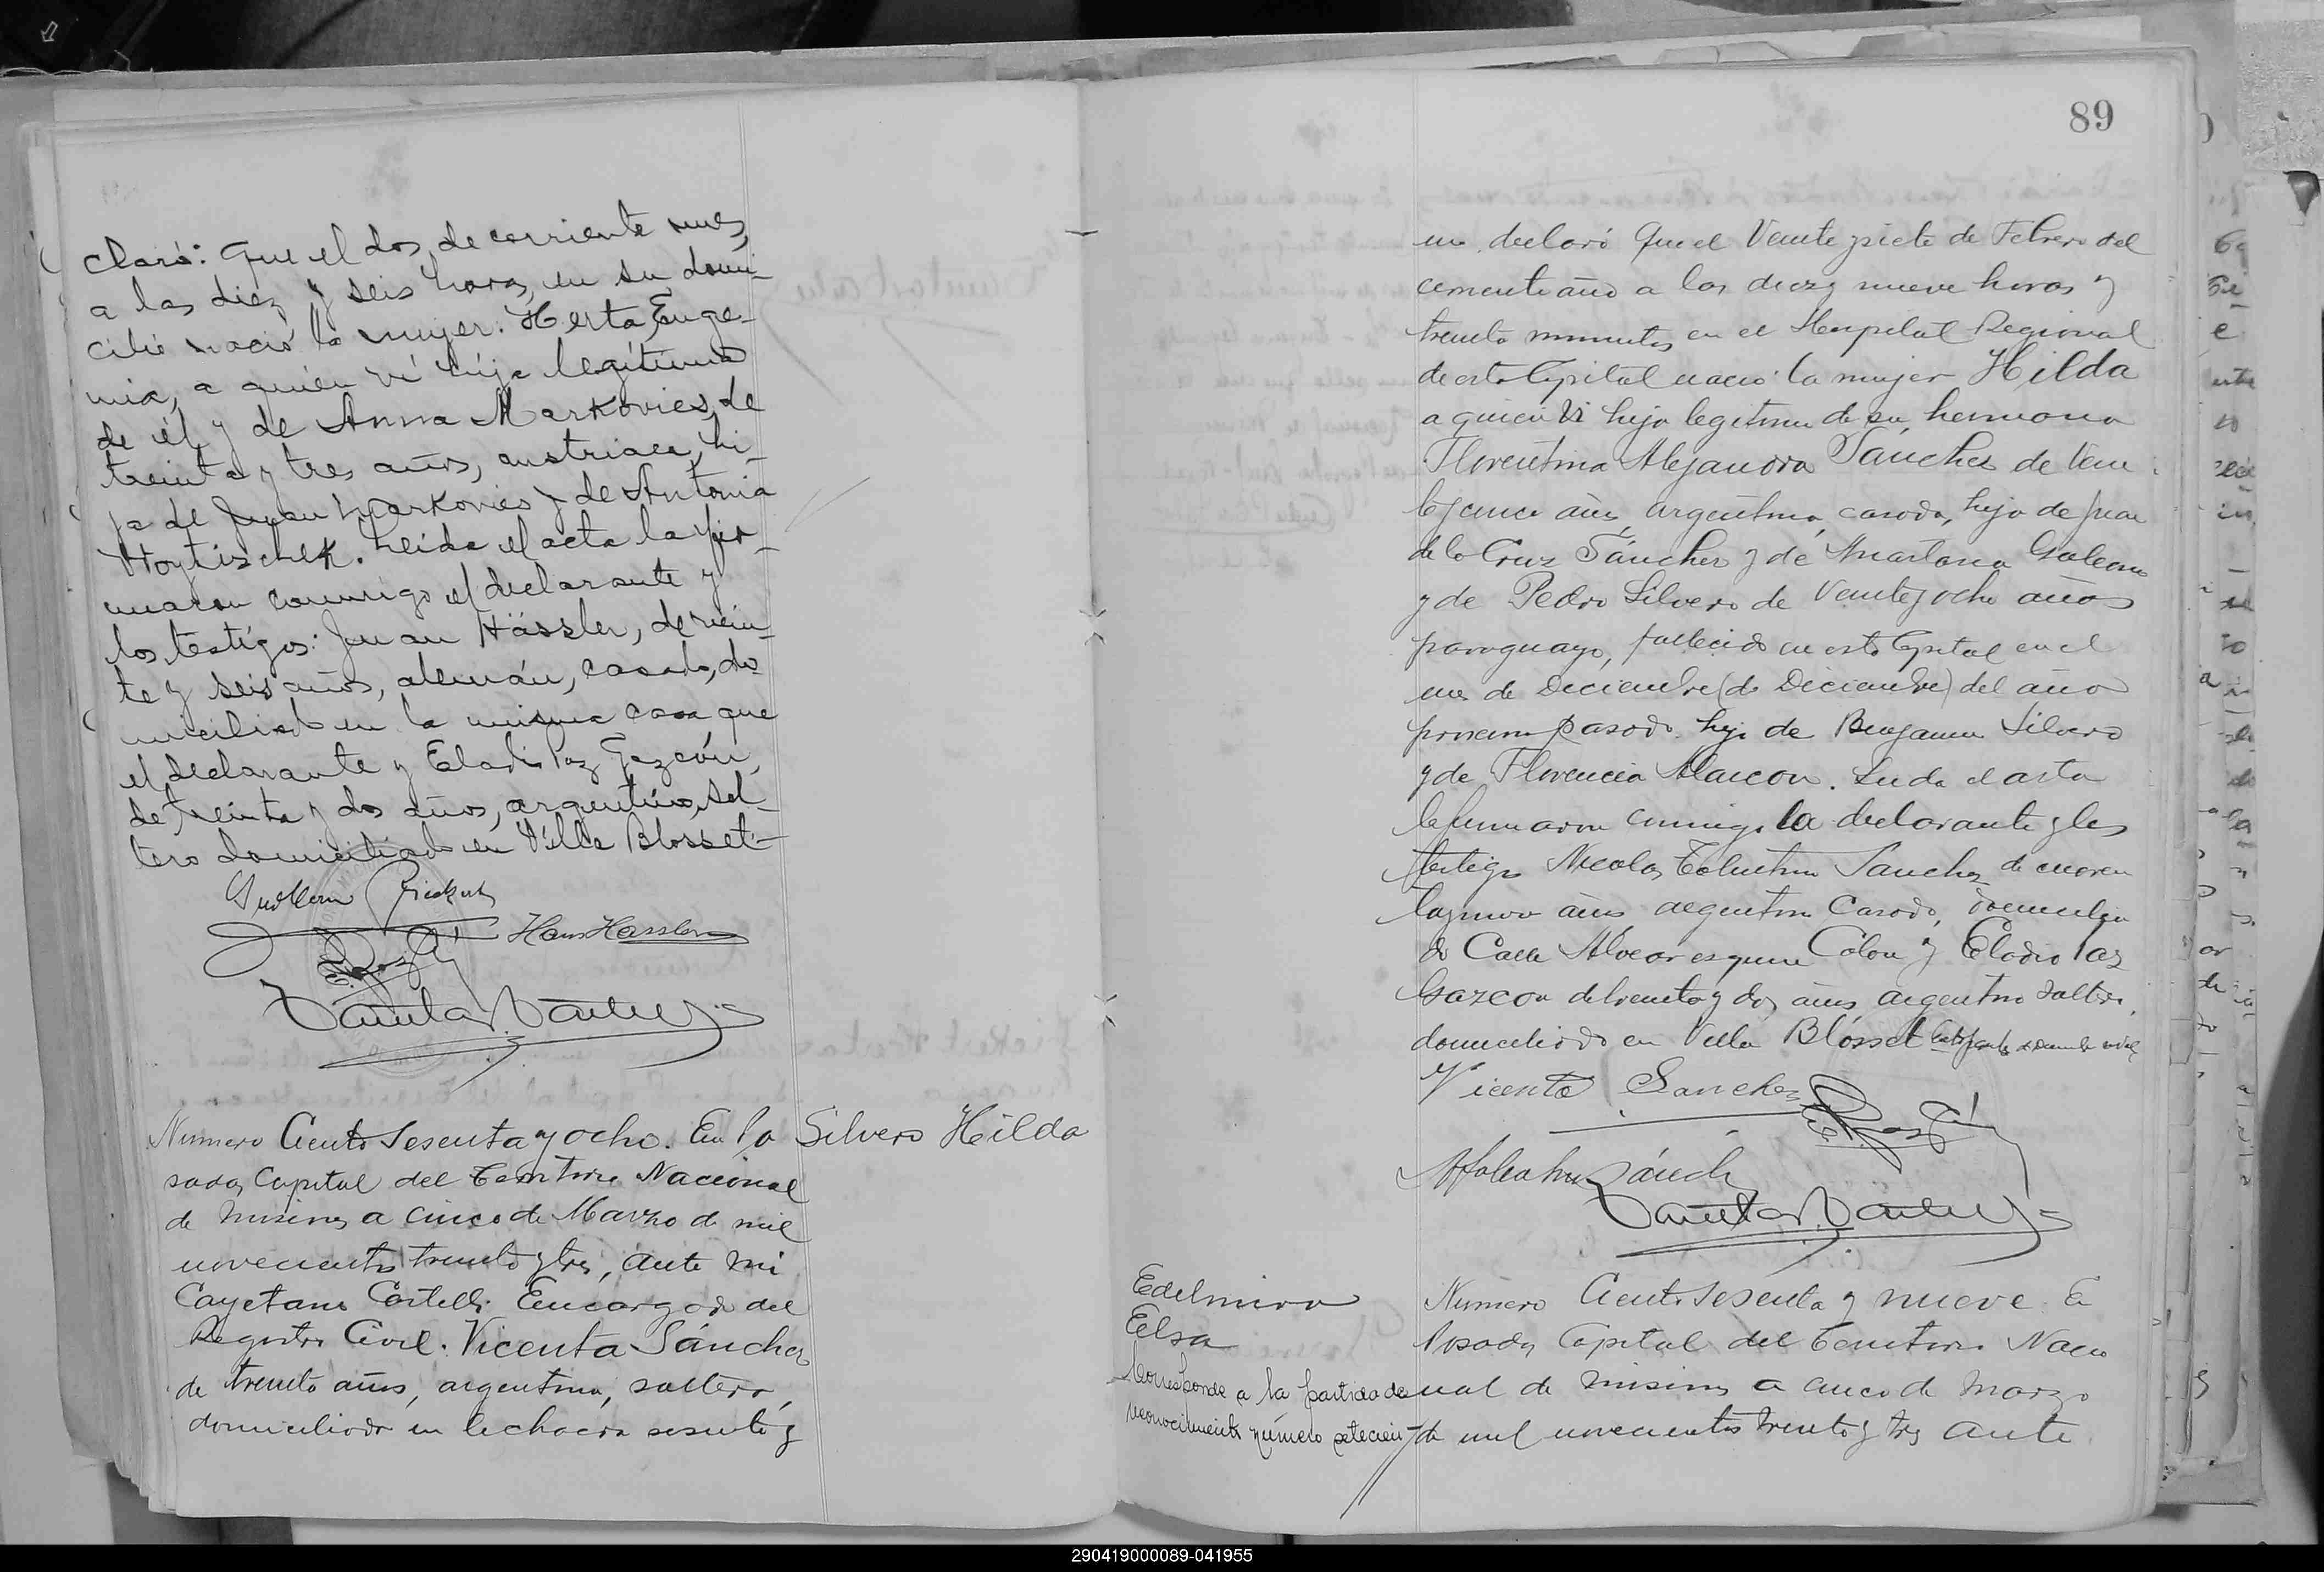 claró: Que el dos de corriente mes,
a las diez y seis horas, en su domi-
cilio nació la mujer: Herta Euge-
nia, a quien ví hija legítima
de él y de Anna Markovics, de
treinta y tres años, austriaca, hi-
ja de Juan Markovics y de Antonia
Woytischek. Leida el acta la fir-
maron conmigo el declarante y
los testígos: Juan Hässler, de vein-
te y seis años, alemán, casado, do-
miciliado en la misma casa que
el declarante y Eladio Paz Gazcón,
de treinta y dos años, argentino, sol-
tero domiciliado en Villa Blosset-
Hans Hassler
Numero Ciento Sesenta y ocho. En Po
Silvero Hilda
sadas Capital del Territorio Nacional
de Misiones a cinco de Marzo de mil
novecientos treinta y tres, ante mi
Cayetano Castelli Encargado del
Registro Civil. Vicenta Sánchez
de treinta años, argentina, soltera,
domiciliada en la chacra sesenta y
89
uno declaró Que el Veinte y siete de Febrero del
corriente año a las diez y nueve horas y
treinta minutos en el Hospital Regional
de esta Capital nació la mujer Hilda
a quien Vi hija legitima de su hermana
Florentina Alejandra Sánchez de Vein
te y cinco años, argentina, casada, hija de Juan
de la Cruz Sánchez y de Galeano
y de Pedro Silvero de Veinte y ocho años
paraguayo, fallecido en esta Capital en el
mes de Diciembre (de Diciembre) del año
proximo pasado hijo de Benjamin Silvero
y de Florencia Alarcon. Leida el acta
la firmaron conmigo la declarante y los
testigos Nicolas Tolentino Sanchez de cuaren
ta y nueve años argentino Casado, domicilia
do Calle Alvear esquina Colon y Eladio Paz
Gazcon de treinta y dos años argentino soltero,
domiciliado en Villa Blosset
Vicenta Sanchez
Edelmira
Elsa
Corresponde a la partida de
reconocimiento número setecien-
Numero Ciento Sesenta y nueve. En
Posadas Capital del Territorio Nacio
nal de Misiones a cinco de Marzo
de mil novecientos treinta y tres ante
290419000089-041955